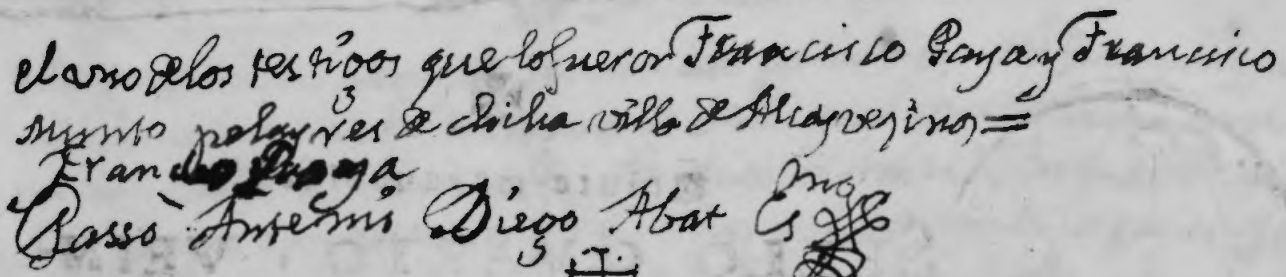 el uno de los testigos que lo fueron Francisco Paya y Francisco
Munto pelayres de dicha villa de Alcoy vezinos =
Franco Paya
Passò Ante mi Diego Abat Es no